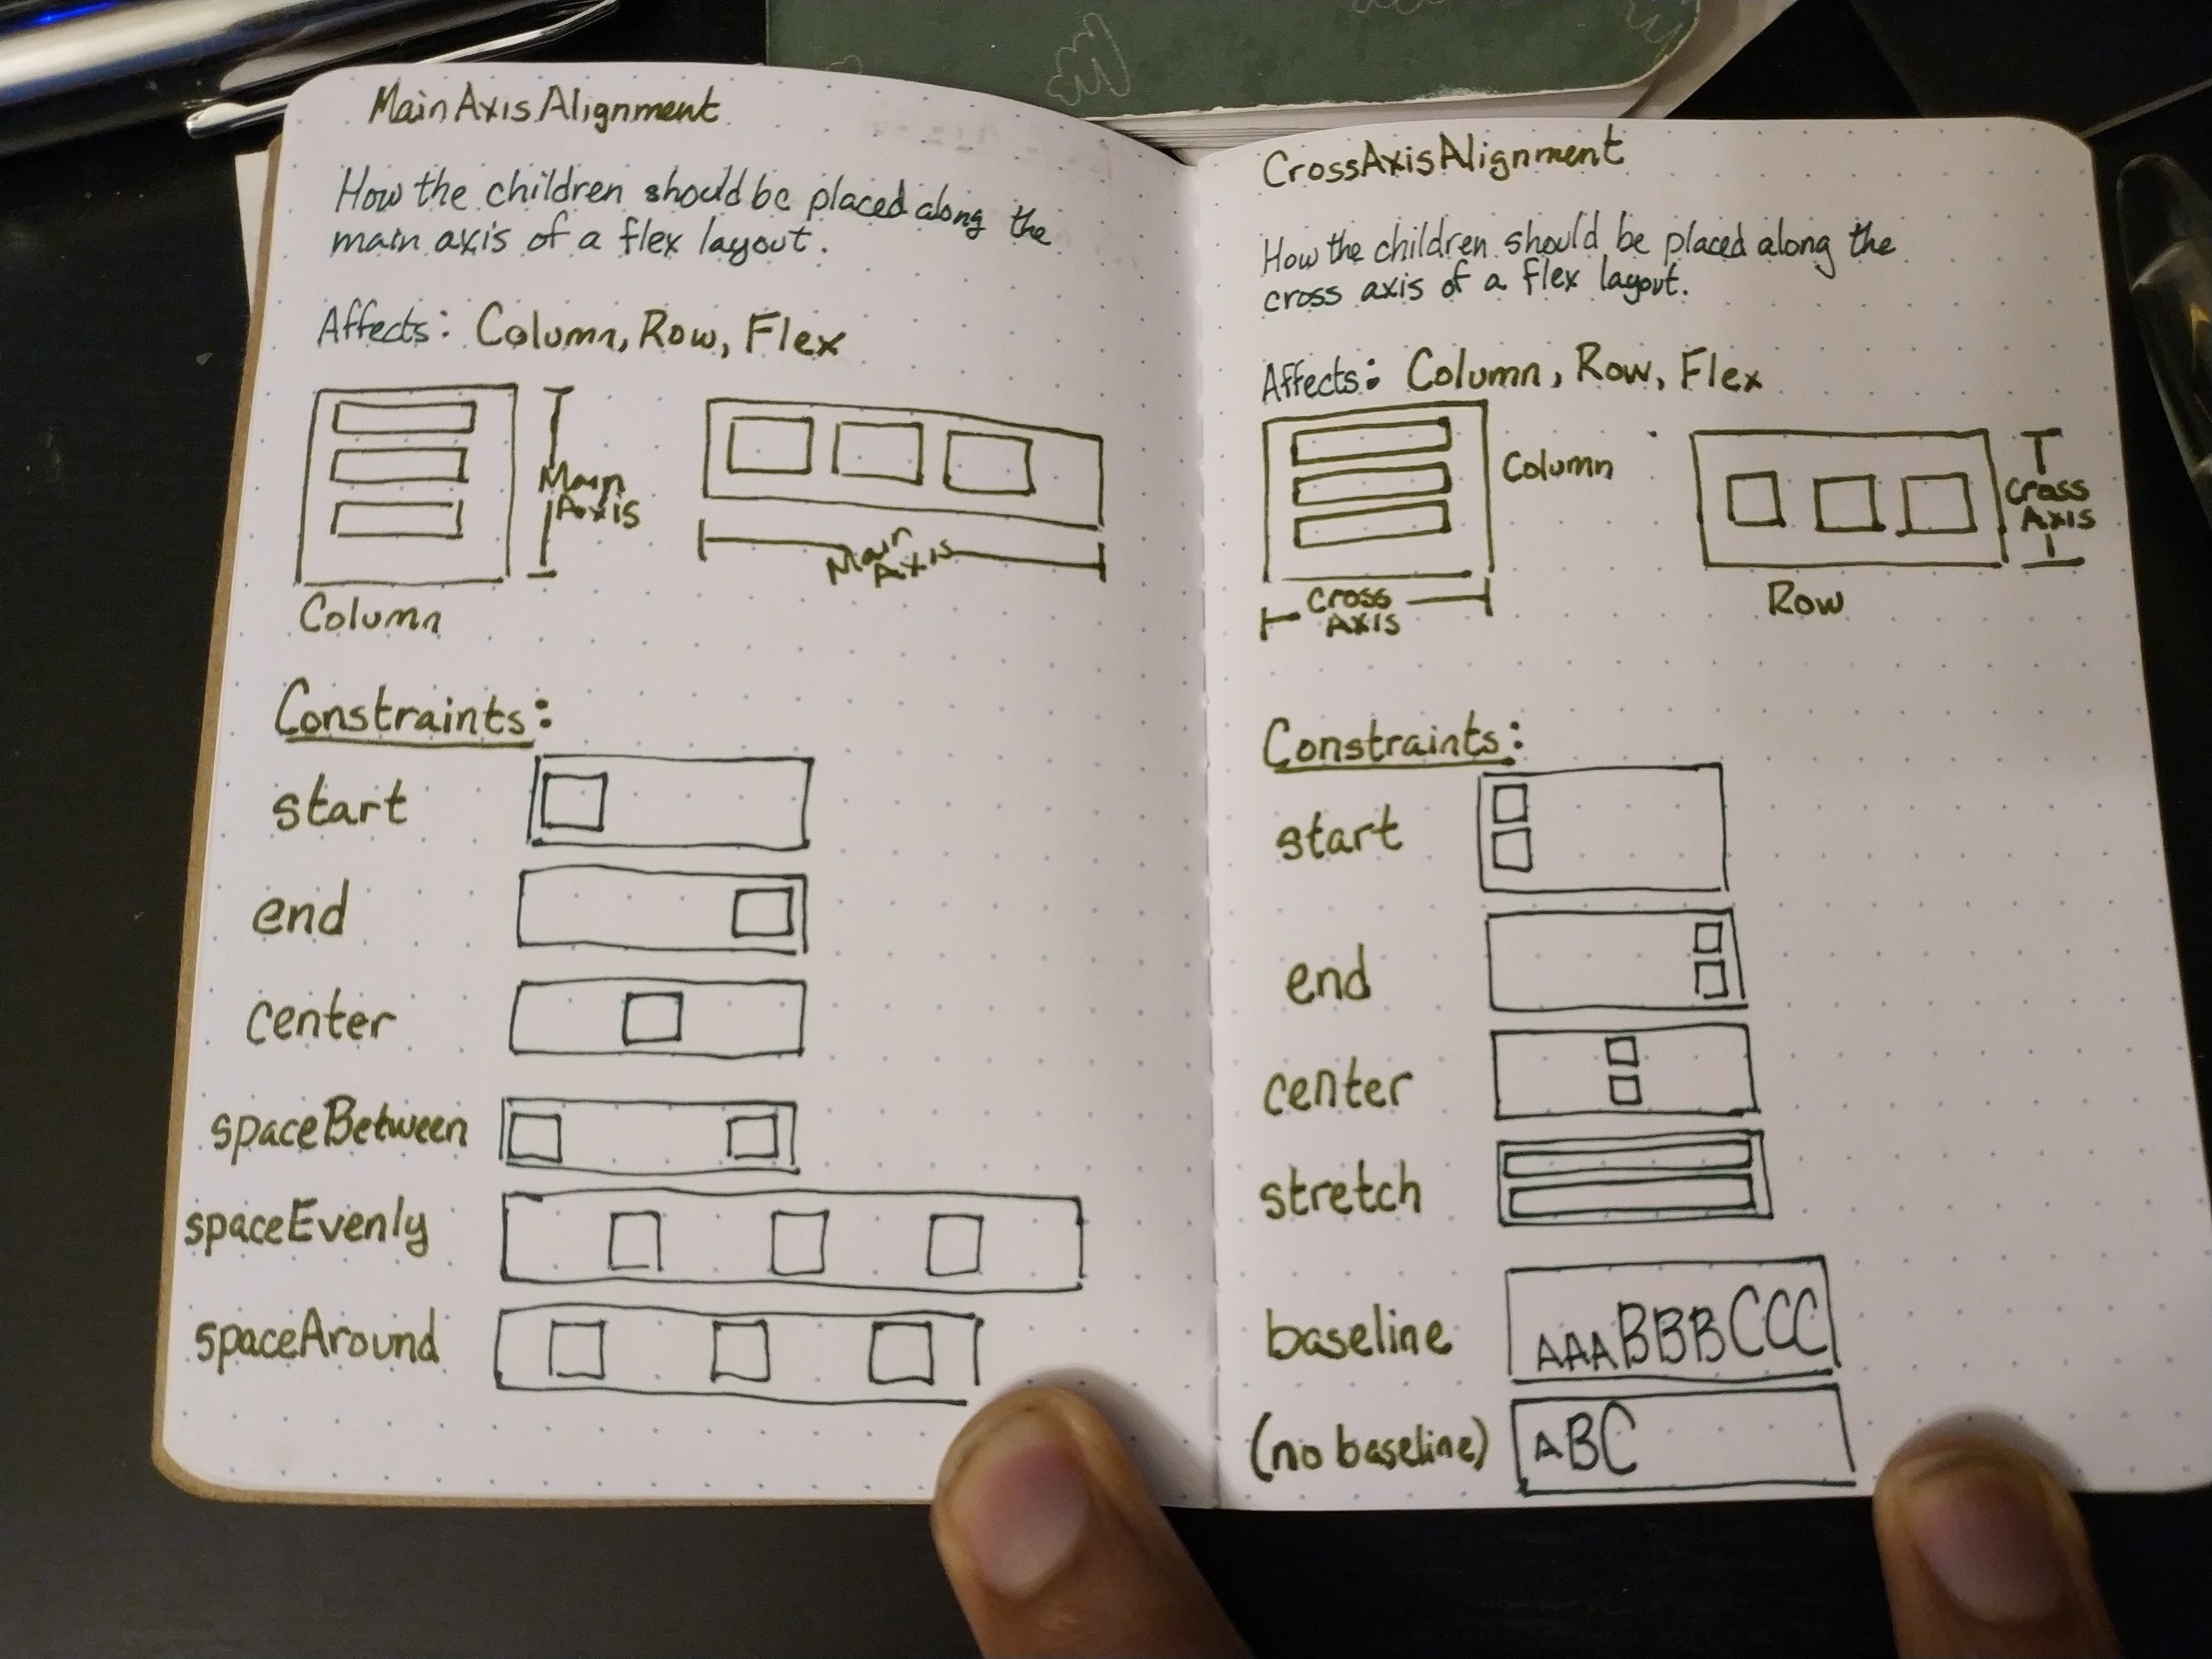 MainAxisAlignment
How the children should be placed along the
main axis of a flex layout.
Affects: Column, Row, Flex
Main
Axis
Main
Axis
Column
Constraints:
start
end
center
spaceBetween
spaceEvenly
spaceAround
CrossAxisAlignment
How the children should be placed along the
cross axis of a flex layout.
Affects: Column, Row, Flex
Column
Cross
Axis
Cross
Axis
Row
Constraints:
start
end
center
stretch
baseline
AAABBBCCC
(no baseline)
ABC